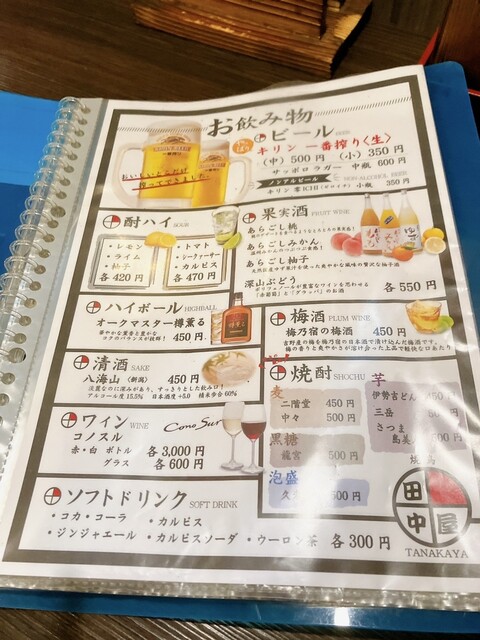 お飲み物
ビール BEER
キリン 一番搾り〈生〉
(中) 500円 (小) 350円
サッポロラガー 中瓶 600円
ノンアルビール NON ALCOHOL BEER
キリン 零ICHI(ゼロイチ) 小瓶 350円
おいしいとこだけ
搾ってできました。
酎ハイ SOUR
・レモン
・ライム
・柚子
各420円
・トマト
・シークァーサー
・カルピス
各470円
果実酒 FRUIT WINE
あらごし桃
あらごしみかん
あらごし柚子
深山ぶどう
各550円
ハイボール HIGHBALL
オークマスター樽薫る
華やかな薫香と豊かな
コクのバランスが抜群! 450円
梅酒 PLUM WINE
梅乃宿の梅酒 450円
吉野産の梅を梅乃宿の日本酒で漬け込んだ梅酒です。
清酒 SAKE
八海山(新潟) 450円
淡麗なのに深みがあり、すっきりとした飲み口!
アルコール度 15.5% 日本酒度 +5.0 精米歩合 60%
焼酎 SHOCHU
麦
二階堂 450円
中々 500円
黒糖
龍宮 500円
泡盛
500円
芋
伊勢吉どん
三岳
さつま
島美人
ワイン WINE
コノスル Cono Sur
赤・白 ボトル 各3,000円
グラス 各600円
ソフトドリンク SOFT DRINK
・コカ・コーラ ・カルピス
・ジンジャエール ・カルピスソーダ ・ウーロン茶 各300円
田中屋
TANAKAYA